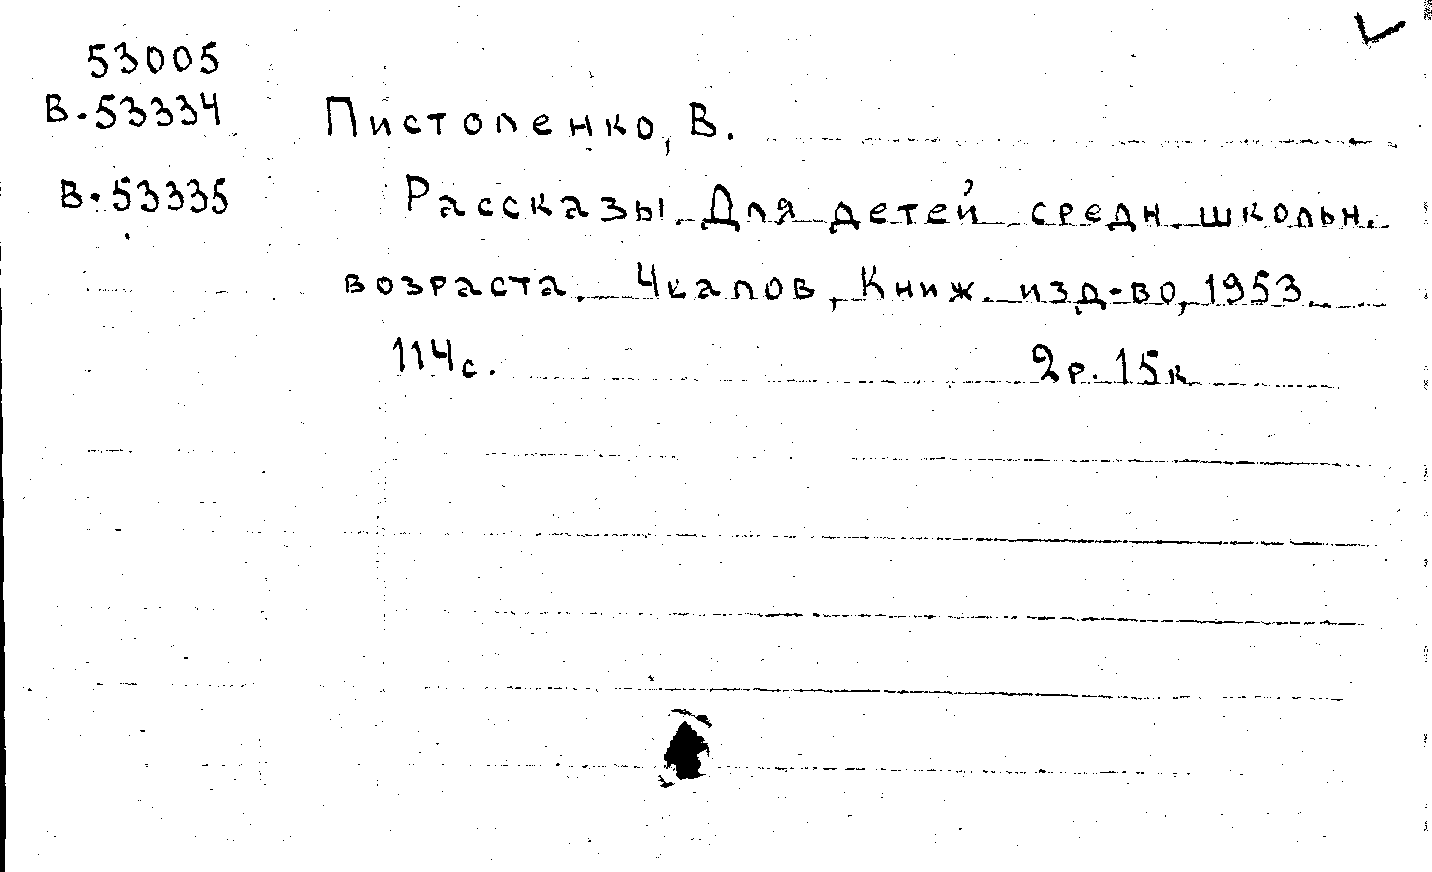 53005
В-53334
Пистоленко, В.
В-53335
Рассказы. Для детей средн. школьн.
возраста. Чкалов, Книж. изд-во, 1953.
114с. 2р. 15к